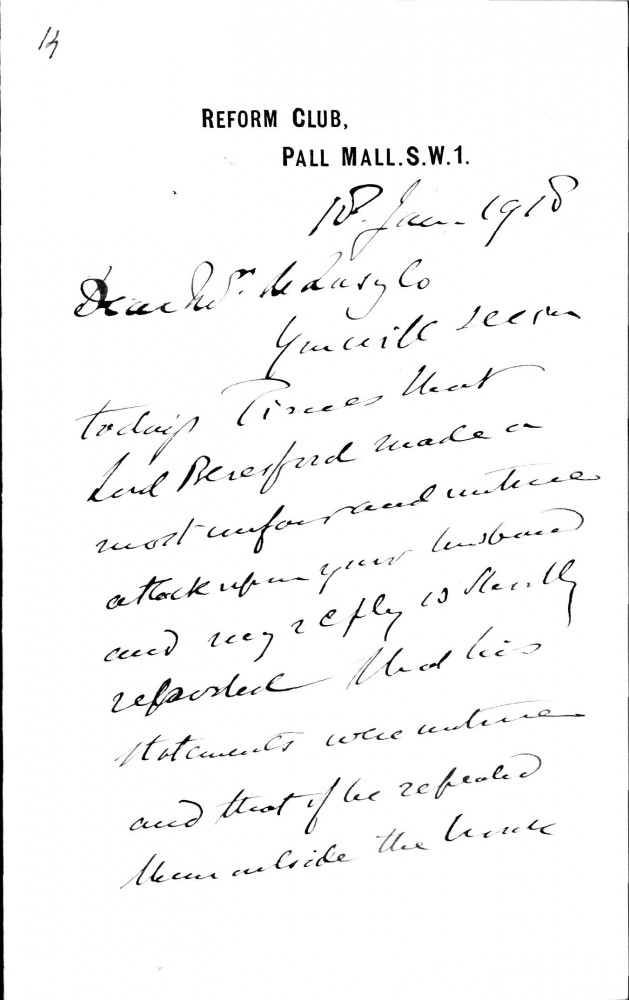 REFORM CLUB,
PALL MALL. S.W.1.
18. Jan. 1918
Dear Mrs. de Laszlo
You will see in
today's Times that
Lord Beresford made a
most unfair and untrue
attack upon your husband
and my reply is shortly
reported that his
statements were untrue
and that if he repeated
them outside the house